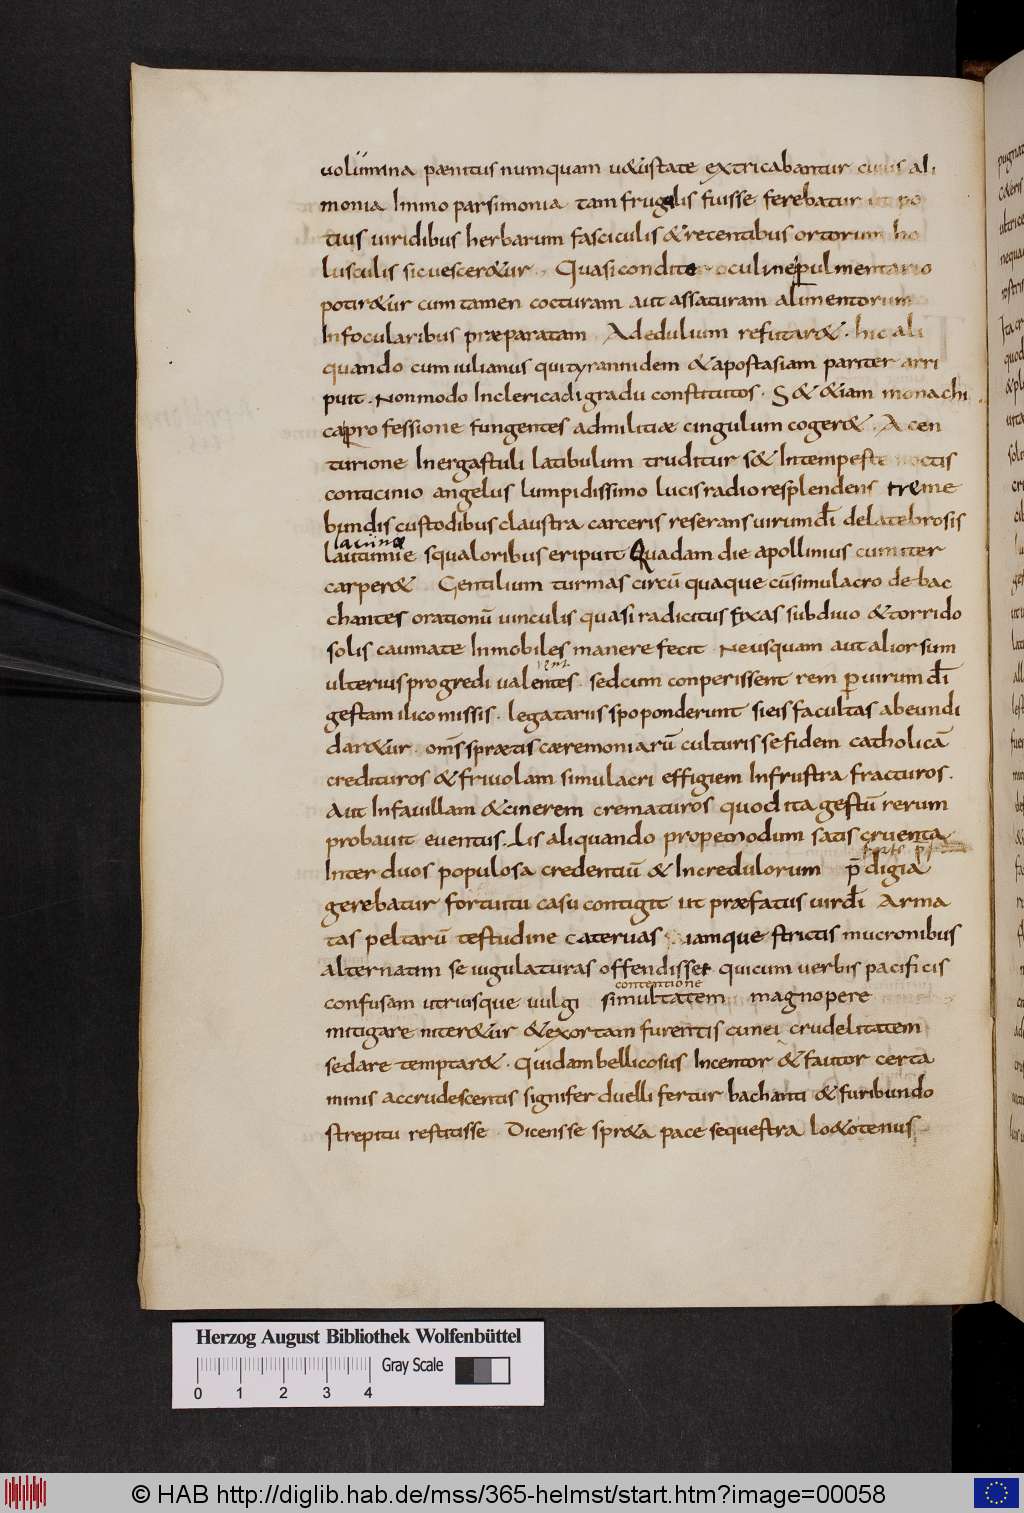 uolumina pænitus numquam u&ustate extricabantur cuius ali
monia Immo parsimonia tam frugalis fuisse ferebatur ut po
tius uiridibus herbarum fasciculis & recentibus ortorum ho
lusculis sic uescer&ur. Quasi condito culine pulmentario
potir&ur cum tamen cocturam aut assaturam alimentorum
In focularibus præparatam Ad edulium refutar&. hic ali
quando cum iulianus qui tyrannidem & apostasiam pariter arri
puit. Non modo In clericadi gradu constitutos. S& &iam monachi
ca professione fungentes ad militiæ cingulum coger&. A cen
turione In ergastuli latibulum truditur s& Intempeste noctis
conticinio angelus lumpidissimo lucis radio resplendens treme
bundis custodibus claustra carceris reserans uirum dī de latebrosis
lautumie squaloribus eripuit Quadam die apollinius cum iter
carper& Gentilium turmas circū quaque cū simulacro debac
chantes orationū uinculis quasi radicitus fixas sub diuo & torrido
solis caumate Inmobiles manere fecit. Neusquam aut aliorsum
ulterius progredi ualentes. sed cum conperissent rem p uirum dī
gestam ilico missis. legatariis spoponderunt si eis facultas abeundi
dar&ur. om̄s spr&is cæremoniarū culturis se fidem catholicā
credituros & friuolam simulacri effigiem In frustra fracturos.
Aut In fauillam & cinerem crematuros quod ita gestū rerum
probauit euentus. Lis aliquando propemodum satis cruenta
Inter duos populosa credentiū & Incredulorum p̄digia
gerebatur fortuitu casu contigit ut præfatus uir dī Arma
tas peltarū testudine cateruas iamque strictis mucronibus
alternatim se iugulaturas offendisset qui cum uerbis pacificis
contentione
confusam utriusque uulgi simultatem magnopere
mitigare niter&ur & exortam furentis cunei crudelitatem
sedare temptar&. Quidam bellicosus Incentor & fautor certa
minis accrudescentis signifer duelli fertur bachanti & furibundo
strepitu restitisse. Dicens se spr&a pace sequestra lo&otenus
Herzog August Bibliothek Wolfenbüttel
0 1 2 3 4 Gray Scale
© HAB http://diglib.hab.de/mss/365-helmst/start.htm?image=00058